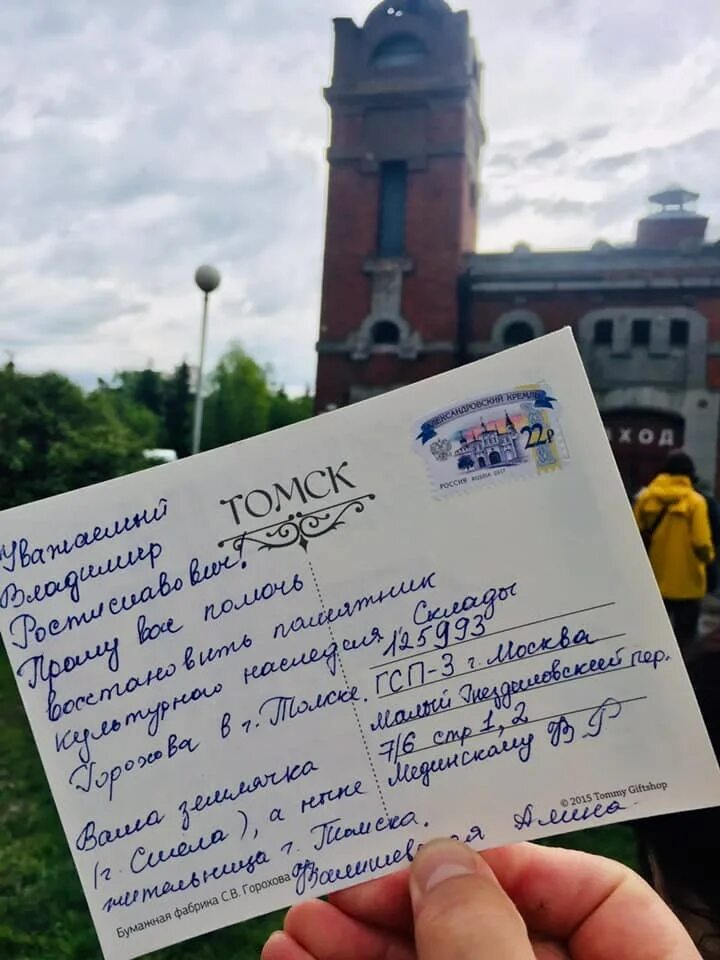 АЛЕКСАНДРОВСКИЙ КРЕМЛЬ
22₽
РОССИЯ RUSSIA 2017
ТОМСК
Уважаемый
Владимир
Ростиславович!
Прошу вас помочь
восстановить памятник
культурного наследия Склады
Горохова в г. Томске.
Ваша землячка
(г. Смела), а ныне
жительница г. Томска.
Алина
125993
ГСП-3 г. Москва
Малый Гнездниковский пер.
7/6 стр 1, 2
Мединскому В Р
© 2015 Tommy Giftshop
Бумажная фабрика С.В. Горохова
ХОД